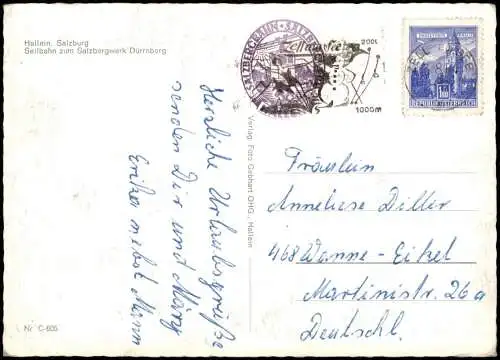 Hallein, Salzburg
Seilbahn zum Salzbergwerk Dürrnberg
Herzliche Urlaubsgrüße
senden Dir und März
Erika nebst Mann
Verlag Foto Gebhart OHG, Hallein
SALZBERGBAHN • SALZBERG
200
1000m
REPUBLIK ÖSTERREICH
Fräulein
Anneliese Diller
468 Wanne-Eikel
Martinistr. 26a
Deutschl.
Nr. C-605